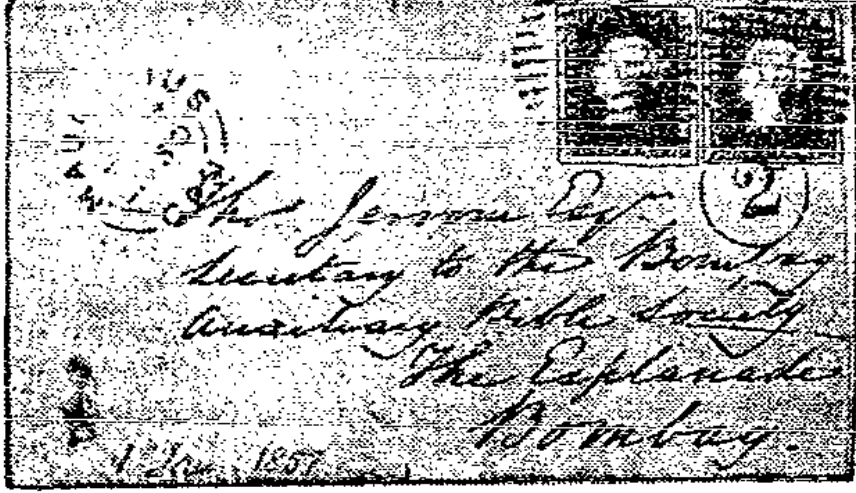 2
Tho Jervis Esq
Secretary to the Bombay
Auxiliary Bible Society
The Esplanade
Bombay.
1 Jan 1857